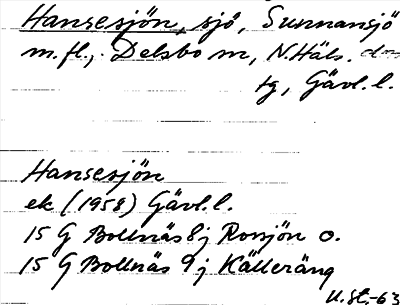 Hansesjön, sjö, Sunnansjö
m.fl., Delsbo sn, N. Häls. dom-
tg, Gävl. l.
Hansesjön
ek (1958) Gävl. l.
15 G Bollnäs 8j Ronsjön o.
15 G Bollnäs 9j Källeräng
U.St.-63